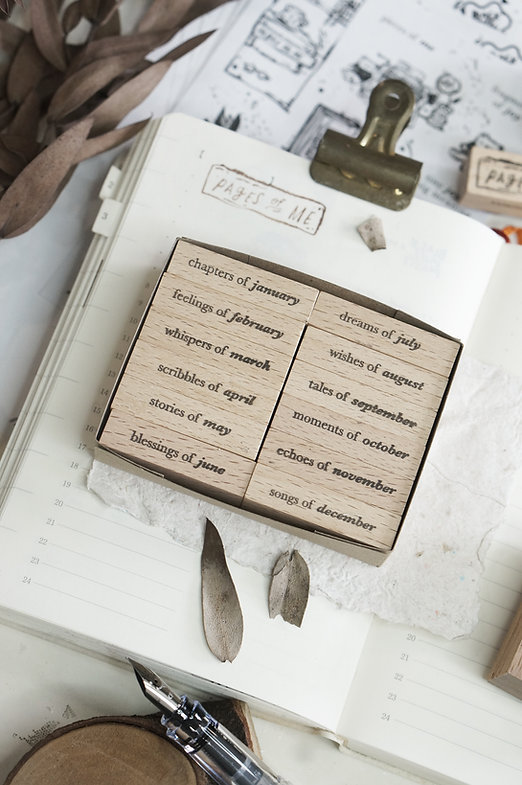 PAGES of ME
PAGE
chapters of january
feelings of february
whispers of march
scribbles of april
stories of may
blessings of june
dreams of july
wishes of august
tales of september
moments of october
echoes of november
songs of december
2
3
15
16
19
20
21
22
23
24
20
21
22
23
24